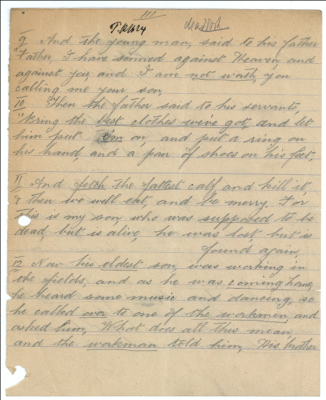 III
9 And the young man, said to his father
Father, I have sanned against Heaven, and
against you, and I am not worth, you
calling me your son,
10 Then the father said to his servants,
"bring the best clothes we've got, and let
him put on, and put a ring on
his hand, and a pair of shoes on his feet,
11 And fetch the fattest calf, and kill it,
& then we will eat, and be merry, For
this is my son, who was supposed to be
dead, but is alive, he was lost, but is
found again,
12 Now his eldest son, was waking in
the fields, and as he was coming home,
he heard some music and dancing, so
he called over to one of the workmen, and
asked him, What does all this mean,
and the workman told him, His brother